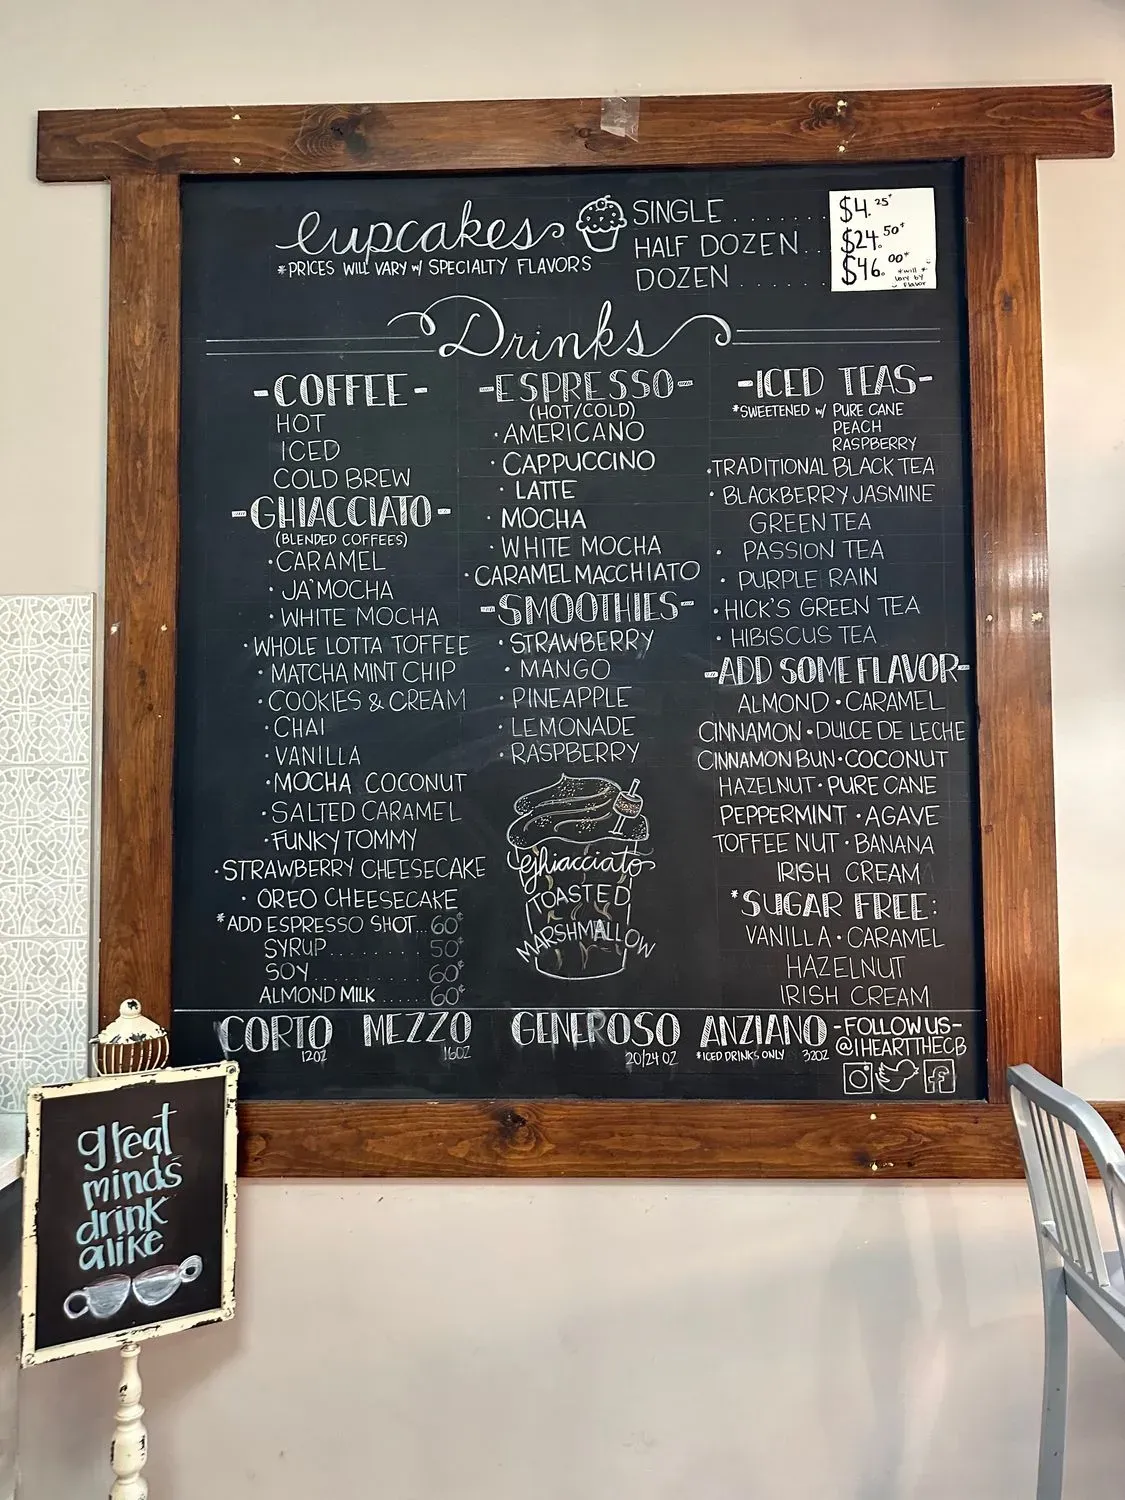 Cupcakes
*PRICES WILL VARY w/ SPECIALTY FLAVORS
SINGLE ........ $4.25+
HALF DOZEN... $24.50+
DOZEN ...... $46.00+
*will *
vary by
flavor
Drinks
-COFFEE-
HOT
ICED
COLD BREW
-GHIACCIATO-
(BLENDED COFFEES)
·CARAMEL
·JA'MOCHA
·WHITE MOCHA
·WHOLE LOTTA TOFFEE
·MATCHA MINT CHIP
·COOKIES & CREAM
·CHAI
·VANILLA
·MOCHA COCONUT
·SALTED CARAMEL
·FUNKY TOMMY
·STRAWBERRY CHEESECAKE
·OREO CHEESECAKE
*ADD ESPRESSO SHOT...60¢
SYRUP.........50¢
SOY...........60¢
ALMOND MILK .....60¢
-ESPRESSO-
(HOT/COLD)
·AMERICANO
·CAPPUCCINO
·LATTE
·MOCHA
·WHITE MOCHA
·CARAMEL MACCHIATO
-SMOOTHIES-
·STRAWBERRY
·MANGO
·PINEAPPLE
·LEMONADE
·RASPBERRY
Ghiacciato
TOASTED
MARSHMALLOW
-ICED TEAS-
*SWEETENED w/ PURE CANE
PEACH
RASPBERRY
·TRADITIONAL BLACK TEA
·BLACKBERRY JASMINE
GREEN TEA
·PASSION TEA
·PURPLE RAIN
·HICK'S GREEN TEA
·HIBISCUS TEA
-ADD SOME FLAVOR-
ALMOND·CARAMEL
CINNAMON·DULCE DE LECHE
CINNAMON BUN·COCONUT
HAZELNUT·PURE CANE
PEPPERMINT·AGAVE
TOFFEE NUT·BANANA
IRISH CREAM
*SUGAR FREE:
VANILLA·CARAMEL
HAZELNUT
IRISH CREAM
CORTO MEZZO GENEROSO ANZIANO
12OZ 16OZ 20/24 OZ *ICED DRINKS ONLY 32OZ
-FOLLOW US-
@IHEARTTHECB
great
minds
drink
alike